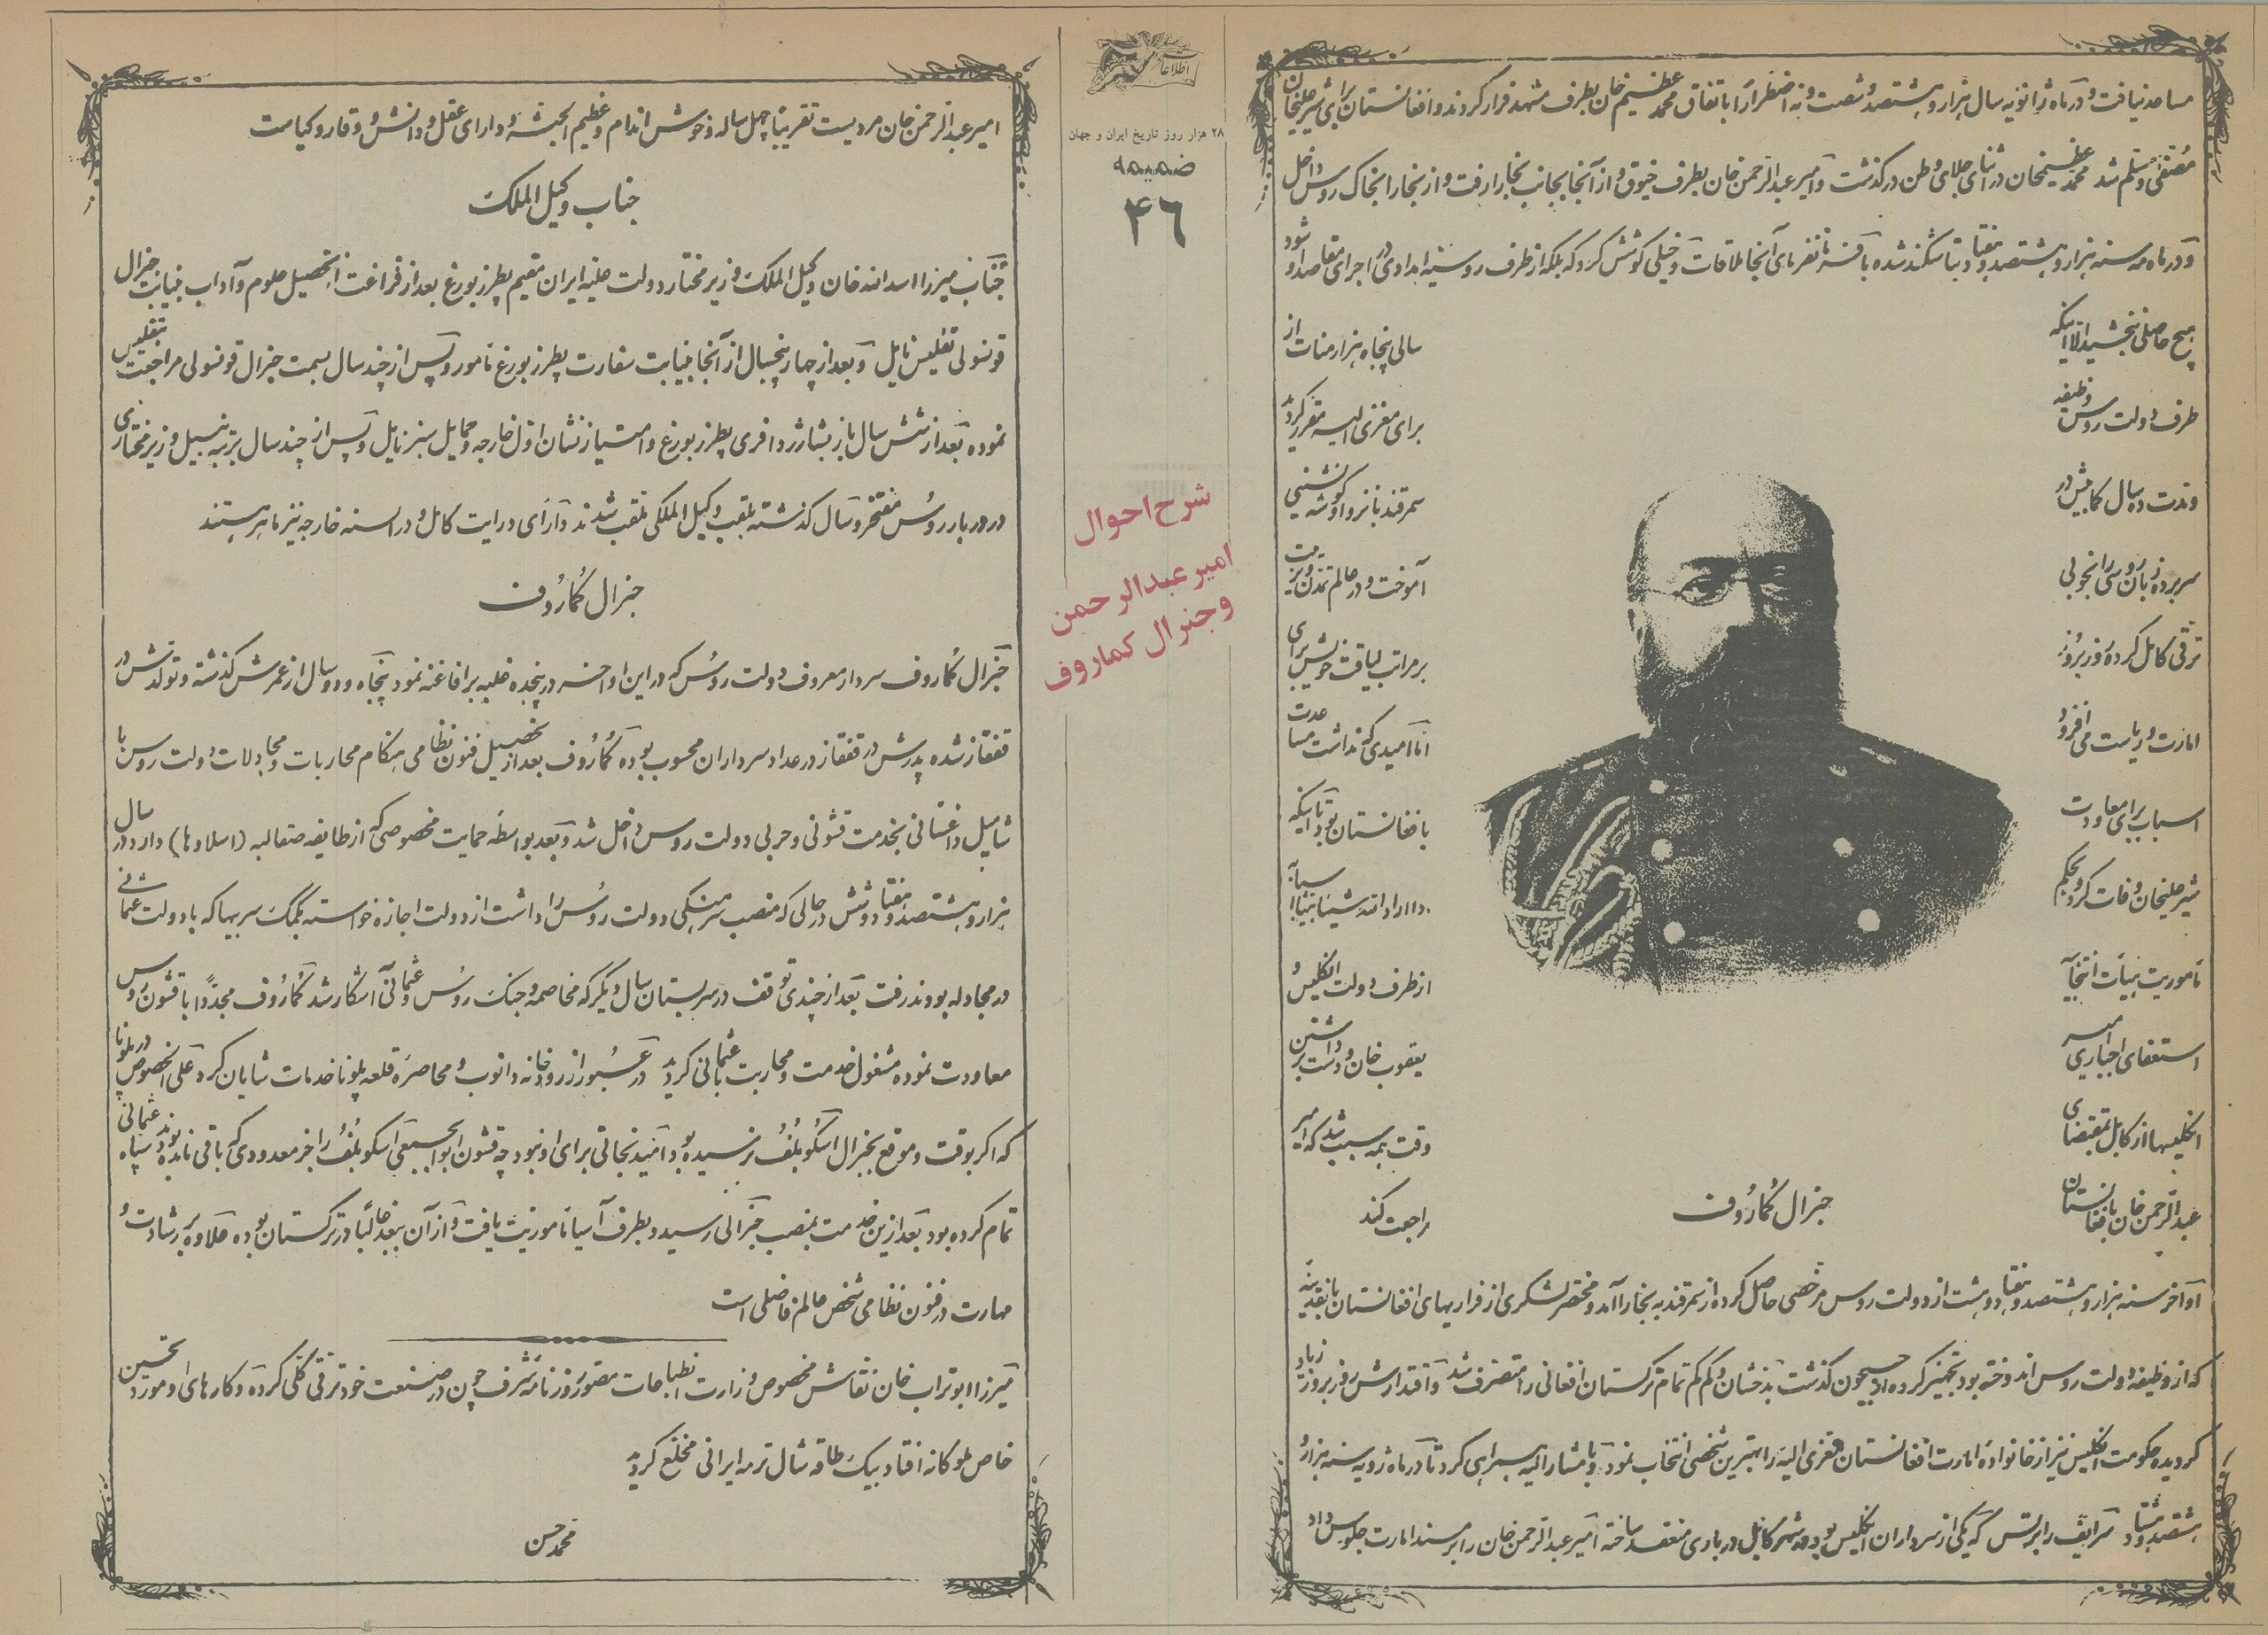 مساعد نیافت و در ماه ژانویه سال هزار و هشتصد و شصت و نه اضطراراً باتفاق محمد عظیم خان بطرف مشهد فرار کردند و افغانستان برای شیرعلیخان
مصفی و مسلم شد محمد عظیمخان در اثنای جلای وطن درگذشت و امیر عبدالرحمن خان بطرف خیوق و از آنجا بجانب بخارا رفت و از بخارا بخاک روس داخل
و در ماه مه سنه هزار و هشتصد و هفتاد بتاشکند شده با فرمانفرمای آنجا ملاقات و خیلی کوشش کرد که بلکه از طرف روسیه امدادی در اجرای مقاصد او شود
هیچ حاصلی نبخشید الا اینکه سالی پنجاه هزار منات از
طرف دولت روس وظیفه برای معزی الیه مقرر گردید
و مدت ده سال کمابیش در سمرقند بانزوا و گوشه نشینی
سر برده زبان روسی را بخوبی آموخت و در عالم تمدن و تربیت
ترقی کامل کرده روز بروز بر مراتب لیاقت خویش برای
امارت و ریاست می افزود اما امیدی که نداشت مساعدت
اسباب برای معاودت بافغانستان بود تا اینکه
شیرعلیخان وفات کرد و بحکم
ماموریت هیأت انتجاب از طرف دولت انگلیس و
استعفای اجباری امیر یعقوب خان و دست برداشتن
انگلیسها از کابل بمقتضای وقت همه سبب شد که امیر
عبدالرحمن خان بافغانستان مراجعت کند
جنرال کماروف
اواخر سنه هزار و هشتصد و هفتاد و هشت از دولت روس مرخصی حاصل کرده از سمرقند به بخارا آمد و مختصر لشکری از فراریهای افغانستان با نقدینه
که از وظیفه دولت روس اندوخته بود تجهیز کرده از جیحون گذشت بدخشان و کم کم تمام ترکستان افغانی را متصرف شد و اقتدارش روز بروز زیاد
گردیده حکومت انگلیس نیز از خانواده امارت افغانستان معزی الیه را بهترین شخصی انتخاب نمود و با مشارالیه همراهی کرد تا در ماه ژویه سنه هزار و
هشتصد و هشتاد سر فردریک رابرتس که یکی از سرداران انگلیس بود در شهر کابل درباری منعقد ساخته امیر عبدالرحمن خان را بر مسند امارت جلوس داد
اطلاعات
۲۸ هزار روز تاریخ ایران و جهان
ضمیمه
۴۶
شرح احوال
امیر عبدالرحمن
و جنرال کماروف
امیر عبدالرحمن خان مردیست تقریباً چهل ساله و خوش اندام و عظیم الجثه و دارای عقل و دانش و وقار و کیاست
جناب وکیل الملک
جناب میرزا اسدالله خان وکیل الملک وزیر مختار دولت علیه ایران مقیم پطرزبورغ بعد از فراغت از تحصیل علوم و آداب بنیابت جنرال
قونسولی تفلیس نایل و بعد از چهار پنجسال از آنجا بنیابت سفارت پطرزبورغ مامور و پس از چند سال بسمت جنرال قونسولی مراجعت بتفلیس
نموده بعد از شش سال باز بشارژدافری پطرزبورغ و امتیاز نشان اول خارجه و حمایل سبز نایل و پس از چند سال برتبه نبیل وزیر مختاری
در دربار روس مفتخر و سال گذشته بلقب وکیل الملکی ملقب شدند دارای درایت کامل و در السنه خارجه نیز ماهر هستند
جنرال کماروف
جنرال کماروف سردار معروف دولت روس که در این اواخر در پنجده غلبه بر افاغنه نمود پنجاه و دو سال از عمرش گذشته و تولدش در
قفقاز شده پدرش در قفقاز در عداد سرداران محسوب بوده کماروف بعد از تحصیل فنون نظامی هنگام محاربات و مجادلات دولت روس با
شامیل داغستانی بخدمت قشونی و حربی دولت روس داخل شد و بعد بواسطه حمایت مخصوصی که از طایفه صقالبه (اسلاوها) دارد در سال
هزار و هشتصد و هفتاد و شش در حالی که منصب سرهنگی دولت روس را داشت از دولت اجازه خواسته بکمک سربیها که با دولت عثمانی
در مجادله بودند رفت بعد از چندی توقف در سربستان سال دیگر که مخاصمه و جنگ روس و عثمانی آشکار شد کماروف مجدداً با قشون روس
معاودت نموده مشغول خدمت و محاربت با عثمانی گردید در عبور از رودخانه دانوب و محاصره قلعه پلونا خدمات شایان کرد علی الخصوص در پلونا
که اگر بوقت و موقع بجنرال اسکوبلف نرسیده بود امید نجاتی برای او نبود چه قشون ابوابجمعی اسکوبلف را جز معدودی که باقی مانده بودند سپاه عثمانی
تمام کرده بود بعد از این خدمت بمنصب جنرالی رسید و بطرف آسیا ماموریت یافت و از آن ببعد غالباً در ترکستان بوده علاوه بر رشادت و
مهارت در فنون نظامی شخص عالم فاضلی است
میرزا ابوتراب خان نقاش مخصوص وزارت انطباعات مصور روزنامه شرف چون در صنعت خود ترقی کلی کرده و کارهای او مورد تحسین
خاص ملوکانه افتاد بیک طاقه شال ترمه ایرانی مخلع گردید
محمد حسن